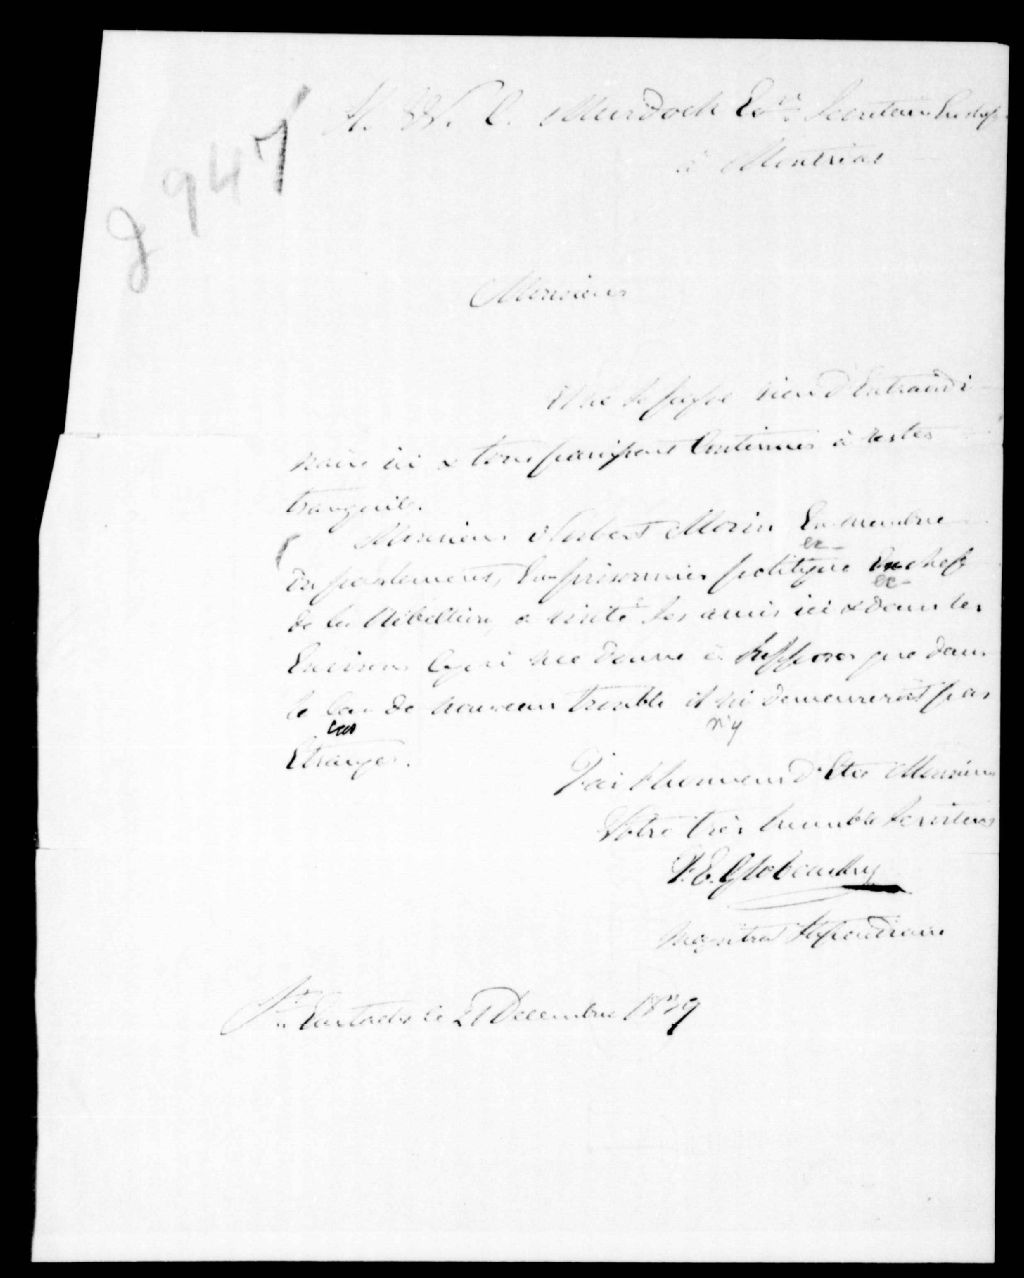 2947
T. W. C. Murdoch Ecr. Secretaire en chef
à Montréal
Monsieur
Il ne se passe rien d'Extraordi
naire ici & tous paraissent Continuer à rester
tranquile.
Monsieur Norbert Morin Ex membre
ex
du parlement, Ex prisonnier politique Ex chef
ex
de la Rebellion, a visité ses amis ici & dans les
Environs Ce qui me donne à Supposer que dans
le Cas de nouveau trouble il ni demeurerait pas
cas n'y
Etranger.
J'ai l'honneur d'Etre Monsieur
Votre très humble Serviteur
P. E. Globensky
Magistrat Stipendiaire
St. Eustache le 21 Decembre 1839